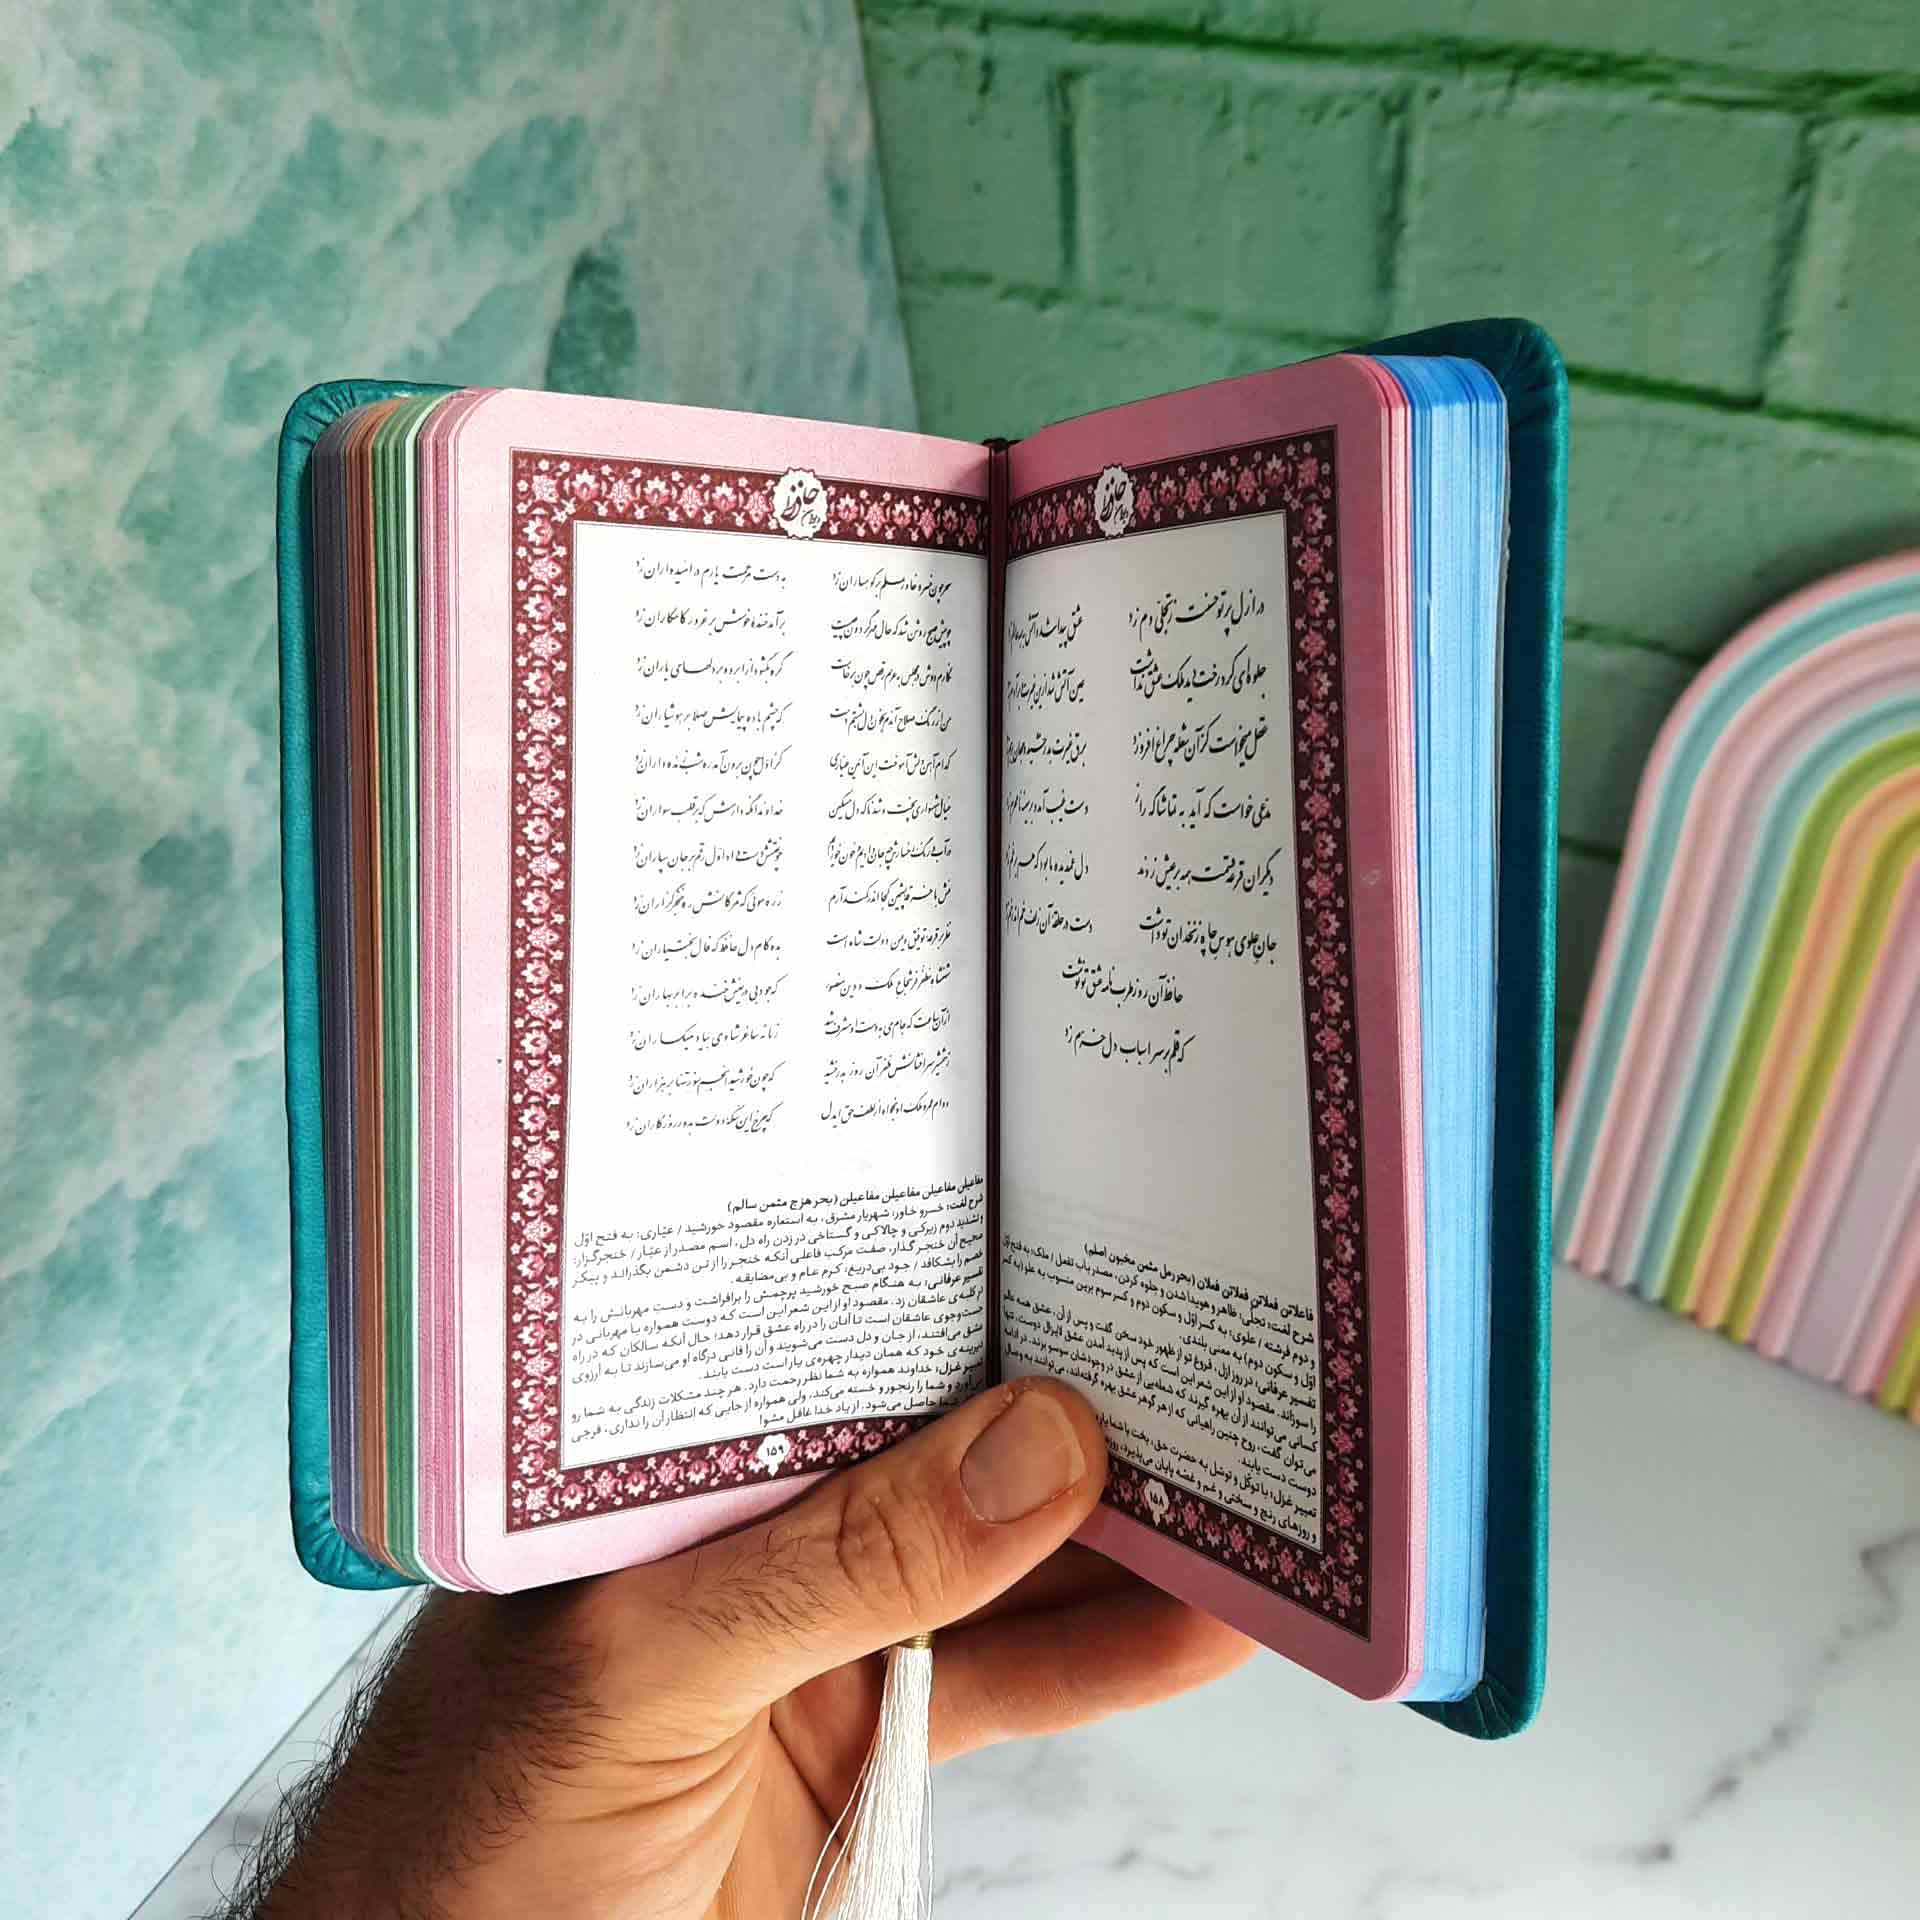 دیوان حافظ
در ازل پرتو حسنت ز تجلّی دم زد عشق پیدا شد و آتش به همه عالم زد
جلوه‌ای کرد رخت دید ملک عشق نداشت عین آتش شد از این غیرت و بر آدم زد
عقل میخواست کز آن شعله چراغ افروزد برق غیرت بدرخشید و جهان برهم زد
مدّعی خواست که آید به تماشاگه راز دست غیب آمد و بر سینهٔ نامحرم زد
دیگران قرعهٔ قسمت همه بر عیش زدند دل غمدیدهٔ ما بود که هم بر غم زد
جان علوی هوس چاه زنخدان تو داشت دست در حلقهٔ آن زلف خم اندر خم زد
حافظ آن روز طربنامهٔ عشق تو نوشت
که قلم بر سر اسباب دل خرّم زد
فاعلاتن فعلاتن فعلاتن فعلان (بحر رمل مثمن مخبون اصلم)
شرح لغت: تجلّی: ظاهر و هویدا شدن و جلوه کردن، مصدر باب تفعل / ملک: به فتح اوّل
و دوم فرشته / علوی: به کسر اوّل و سکون دوم و کسر سوم برین منسوب به علو (به کسر
اوّل و سکون دوم) به معنی بلندی.
تفسیر عرفانی: در روز ازل، فروغ تو از ظهور خود سخن گفت و پس از آن، عشق همه عالم
را سوزاند. مقصود او از این شعر این است که پس از پدید آمدن عشق لایزال دوست، تنها
کسانی می‌توانند از آن بهره گیرند که شعله‌یی از عشق در وجودشان سوسو بزند. در ادامه
می‌توان گفت، روح چنین راهیانی که از هر گوهر عشق بهره گرفته‌اند، می‌توانند به وصال
دوست دست یابند.
تعبیر غزل: با توکّل و توسّل به حضرت حق، بخت با شما یار
و روزهای رنج و سختی و غم و غصّه پایان می‌پذیرد، روزها
۱۵۸
دیوان حافظ
سحر چون خسرو خاور علم بر کوهساران زد به دست مرحمت یارم در امیدواران زد
چو پیش صبح روشن شد که حال مهر گردون چیست برآمد خنده‌ای خوش بر غرور کامکاران زد
نگارم دوش در مجلس به عزم رقص چون برخاست گره بگشود از ابرو و بر دلهای یاران زد
من از رنگ صلاح آندم بخون دل بشستم دست که چشم باده پیمایش صلا بر هوشیاران زد
کدام آهن دلش آموخت این آئین عیّاری کز اوّل چون برون آمد ره شب زنده داران زد
خیال شهسواری پخت و شد ناگه دل مسکین خداوندا نگه دارش که بر قلب سواران زد
در آب و رنگ رخسارش چه جان دادیم و خون خوردیم چو نقشش دست داد اوّل رقم بر جان سپاران زد
منش با خرقهٔ پشمین کجا اندر کمند آرم زره مویی که مژگانش ره خنجرگزاران زد
نظر بر قرعهٔ توفیق و یمن دولت شاه است بده کام دل حافظ که فال بختیاران زد
شهنشاه مظفّر فر شجاع ملک و دین منصور که جود بی دریغش خنده بر ابر بهاران زد
از آن ساعت که جام می به دست او مشرّف شد زمانه ساغر شادی بیاد میگساران زد
ز شمشیر سرافشانش ظفر آن روز بدرخشید که چون خورشید انجم سوز تنها بر هزاران زد
دوام عمر و ملک او بخواه از لطف حق ایدل که چرخ این سکّهٔ دولت به دور روزگاران زد
مفاعیلن مفاعیلن مفاعیلن مفاعیلن (بحر هزج مثمن سالم)
شرح لغت: خسرو خاور: شهریار مشرق، به استعاره مقصود خورشید / عیّاری: به فتح اوّل
و تشدید دوم زیرکی و چالاکی و گستاخی در زدن راه دل، اسم مصدر از عیّار / خنجرگزار:
صحیح آن خنجر گذار، صفت مرکب فاعلی آنکه خنجر را از تن دشمن بگذراند و پیکر
خصم را بشکافد / جود بی‌دریغ: کرم عام و بی‌مضایقه.
تفسیر عرفانی: به هنگام صبح خورشید پرچمش را برافراشت و دستِ مهربانش را به
در کلبه‌ی عاشقان زد. مقصود او از این شعر این است که دوست همواره با مهربانی در
جست‌وجوی عاشقان است تا آنان را در راه عشق قرار دهد؛ حال آنکه سالکان که در راه
عشق می‌افتند، از جان و دل دست می‌شویند و آن را فانی درگاه او می‌سازند تا به آرزوی
دیرینه‌ی خود که همان دیدار چهره‌ی یار است دست یابند.
تعبیر غزل: خداوند همواره به شما نظر رحمت دارد. هر چند مشکلات زندگی به شما رو
می‌آورد و شما را رنجور و خسته می‌کند، ولی همواره از جایی که انتظار آن را نداری، فرجی
شما حاصل می‌شود. از یاد خدا غافل مشو!
۱۵۹